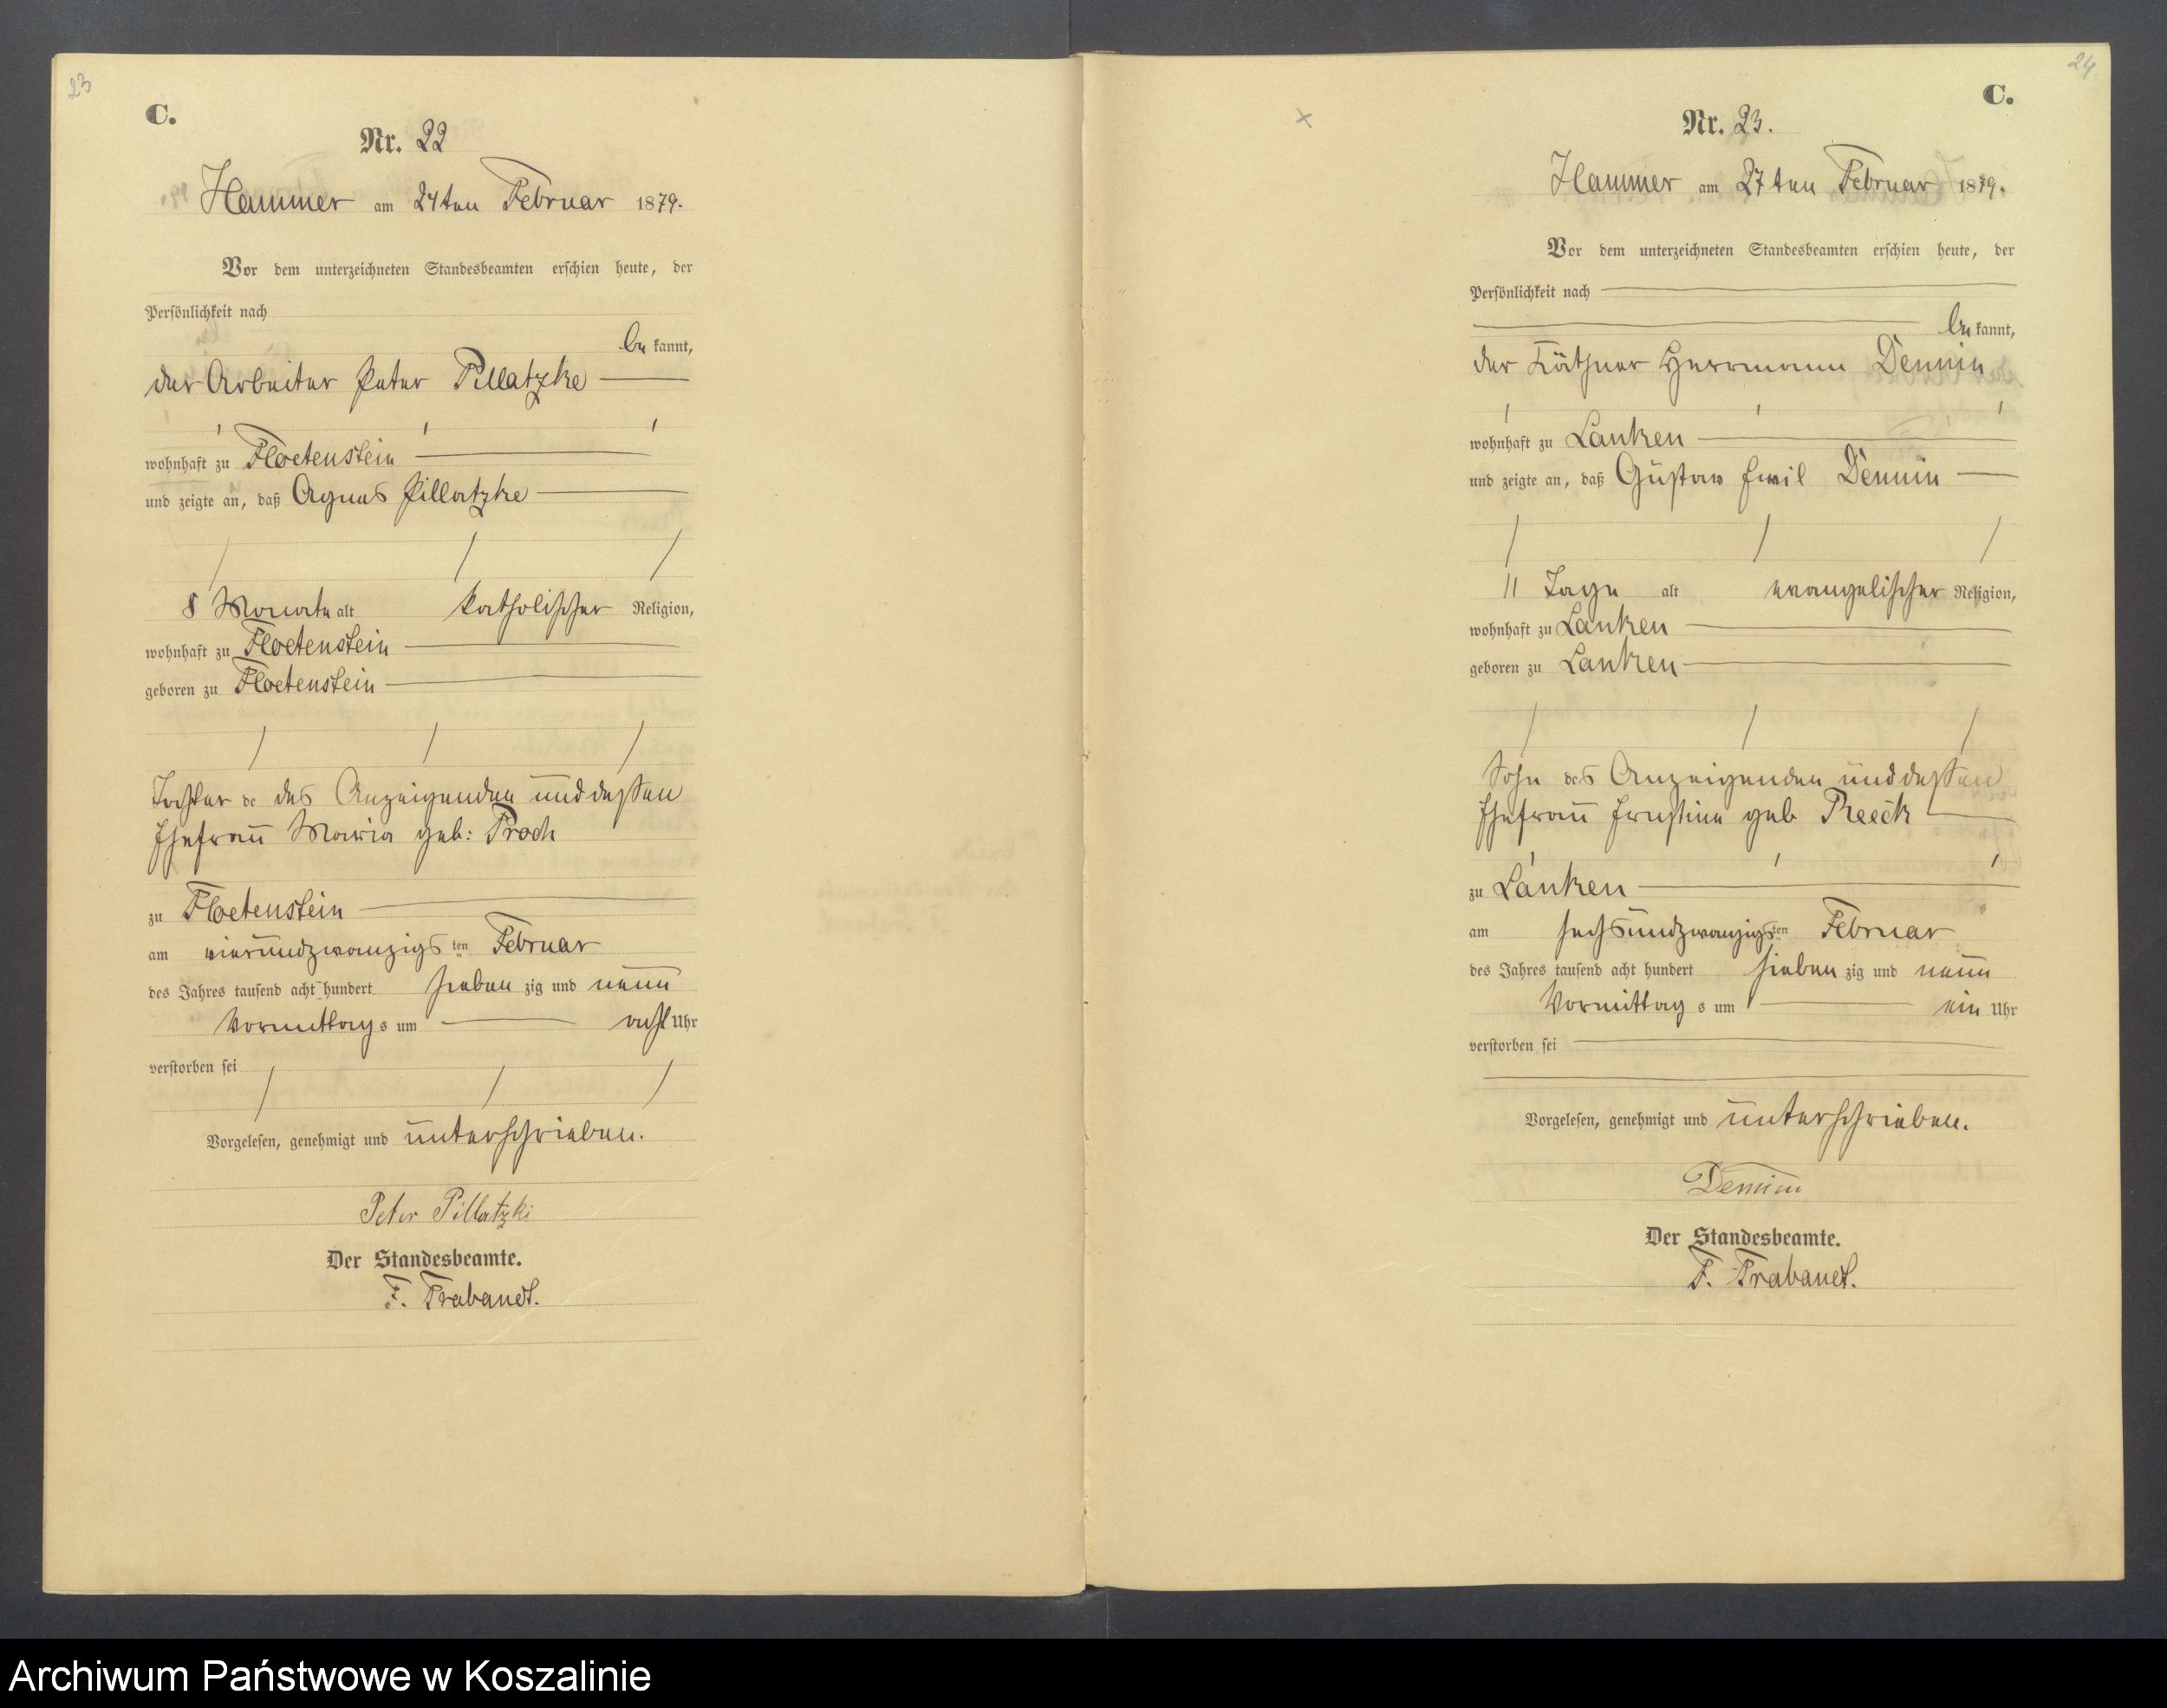 23
C.
Nr. 22
Hammer am 24ten Februar 1879.
Vor dem unterzeichneten Standesbeamten erschien heute, der
Persönlichkeit nach
be kannt,
der Arbeiter Peter Pillatzke
wohnhaft zu Floetenstein
und zeigte an, daß Agnes Pillatzke
8 Monate alt katholischer Religion,
wohnhaft zu Floetenstein
geboren zu Floetenstein
Tochter de des Anzeigenden und dessen
Ehefrau Maria geb: Proch
zu Floetenstein
am vierundzwanzigs ten Februar
des Jahres tausend acht hundert sieben zig und neun
Vormittag s um acht Uhr
verstorben sei
Vorgelesen, genehmigt und unterschrieben.
Peter Pillatzki
Der Standesbeamte.
F. Trabandt.
24
C.
Nr. 23.
Hammer am 27ten Februar 1879.
Vor dem unterzeichneten Standesbeamten erschien heute, der
Persönlichkeit nach
be kannt,
der Käthner Herrmann Demin
wohnhaft zu Lanken
und zeigte an, daß Gustav Emil Demin
11 Tage alt evangelischer Religion,
wohnhaft zu Lanken
geboren zu Lanken
Sohn des Anzeigenden und dessen
Ehefrau Ernstine geb Reeck
zu Lanken
am sechsundzwanzigs ten Februar
des Jahres tausend acht hundert sieben zig und neun
Vormittag s um ein Uhr
verstorben sei
Vorgelesen, genehmigt und unterschrieben.
Demin
Der Standesbeamte.
F. Trabandt.
Archiwum Państwowe w Koszalinie